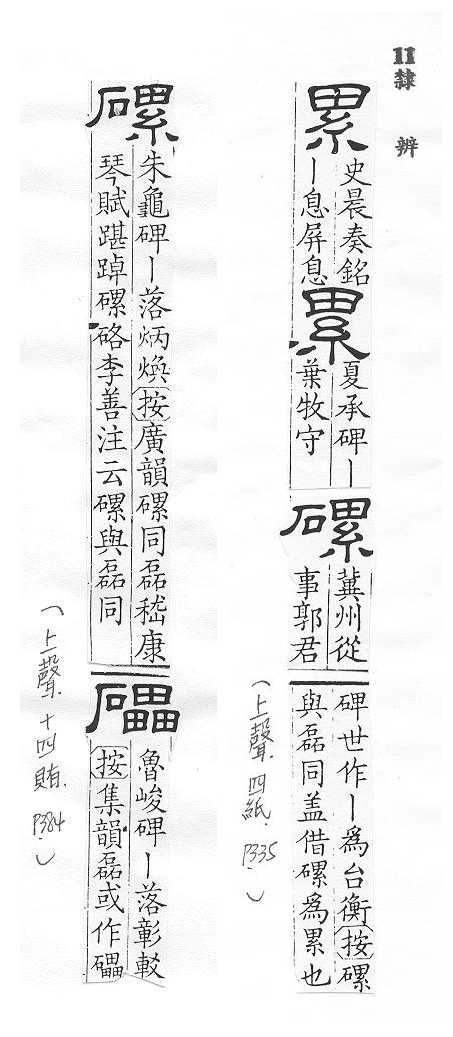 11 隸辨
累
史晨奏銘
丨息屏息
累
夏承碑丨
葉牧守
磥
冀州從
事郭君
碑世作丨爲台衡按磥
與磊同盖借磥爲累也
(上聲.四紙.P335.)
磥
朱龜碑丨落炳煥按廣韻磥同磊嵇康
琴賦踸踔磥硌李善注云磥與磊同
礧
魯峻碑丨落彰較
按集韻磊或作礧
(上聲.十四賄.P384.)